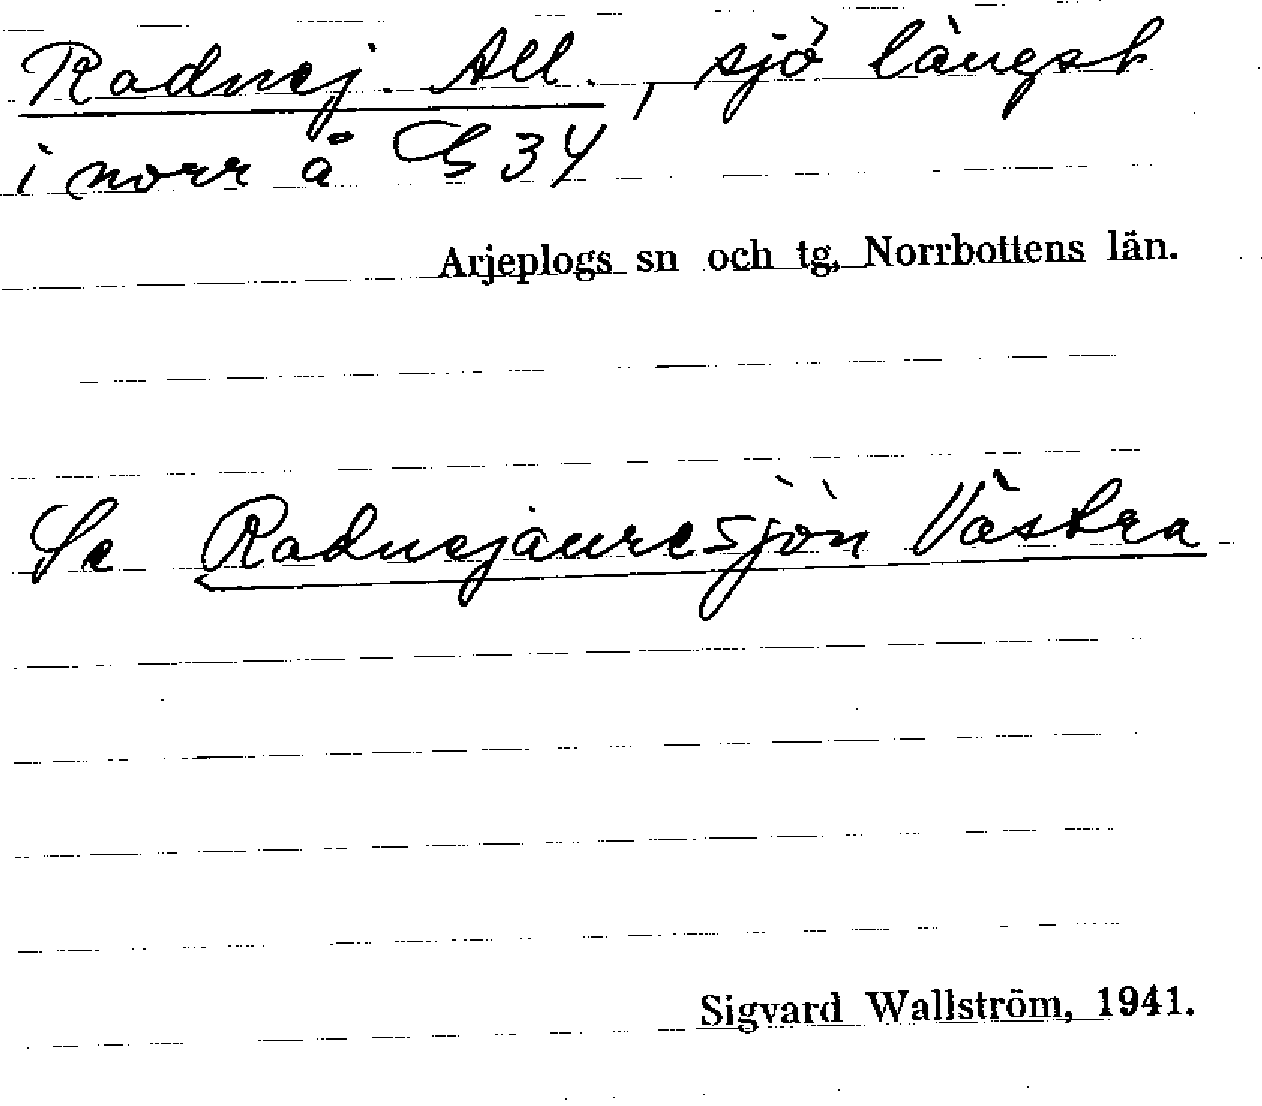 Radnej. All., sjö längst
i norr å G 34
Arjeplogs sn och tg, Norrbottens län.
Se Radnejauresjön Västra
Sigvard Wallström, 1941.